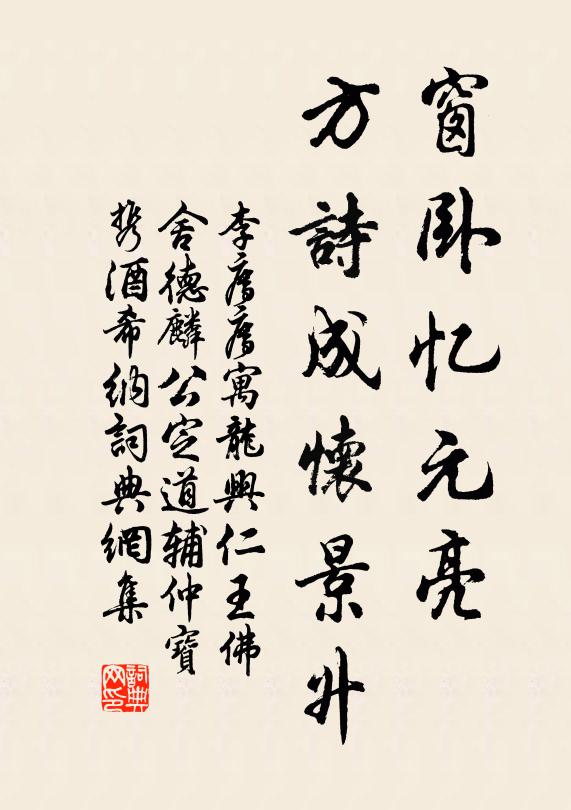 窗卧忆元亮
方詩成懷景升
李廌廌寓龍興仁王佛
舍德麟公定道輔仲寶
携酒希納詞典網集
詞典
网